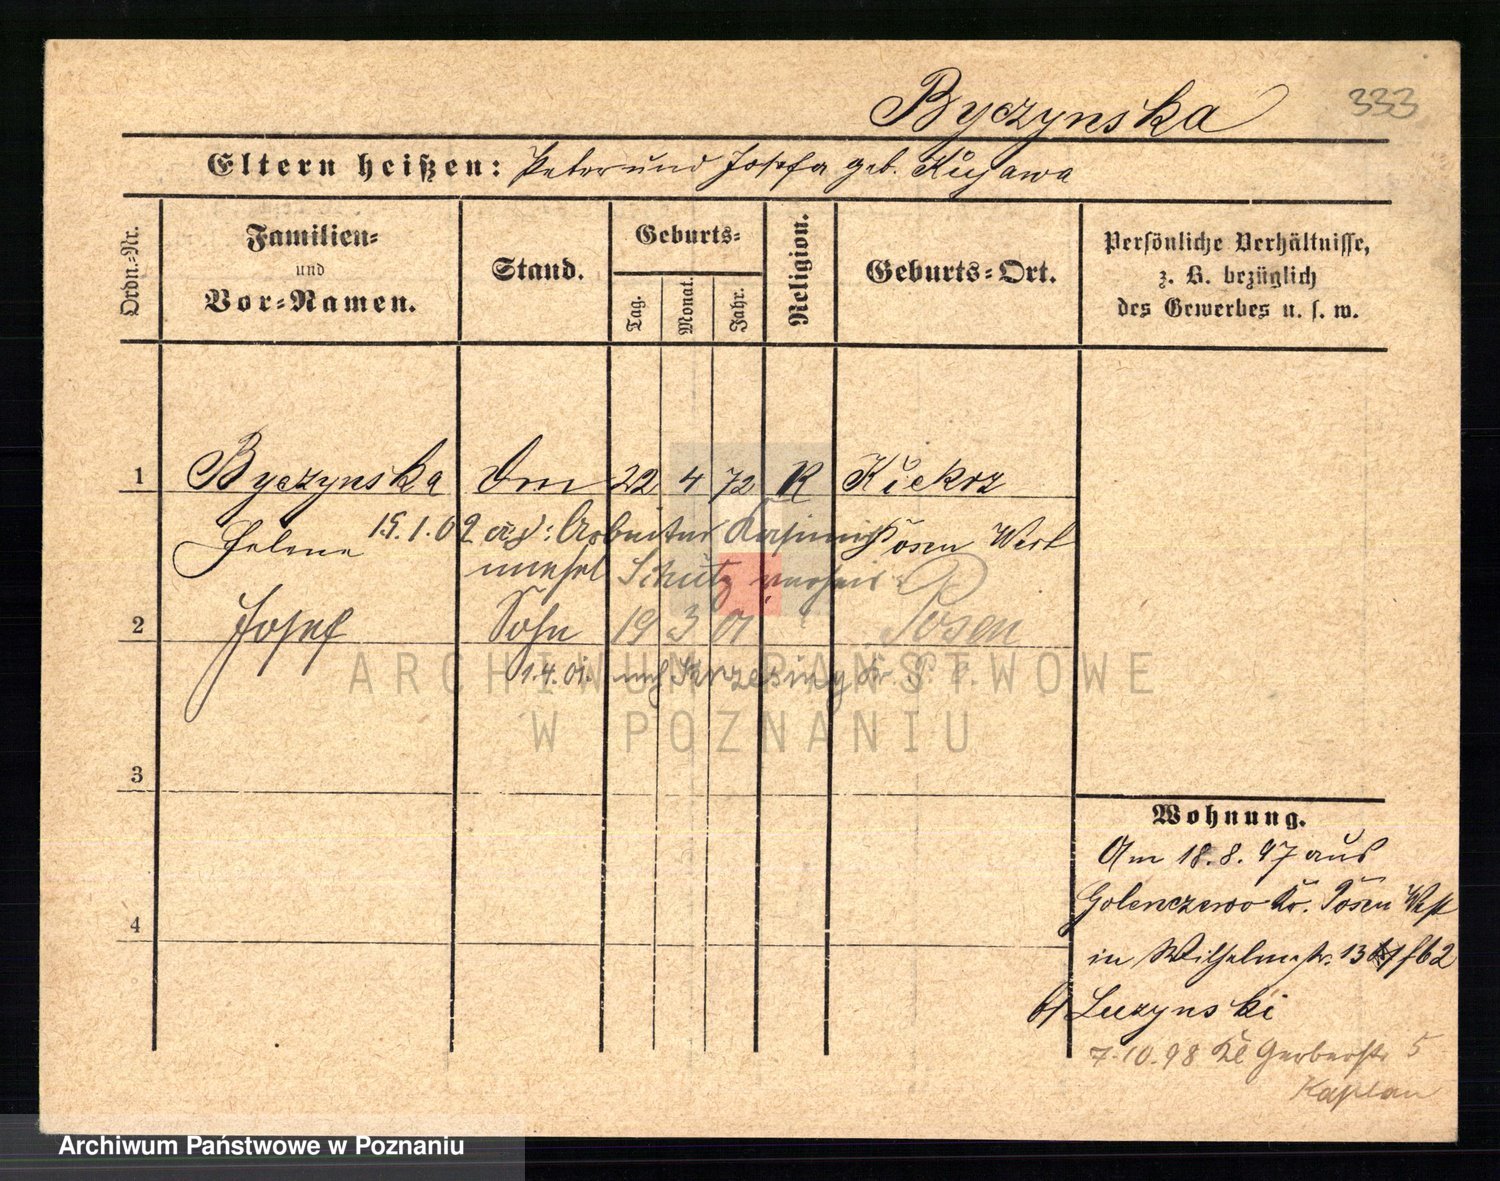 Byczynska 333
Eltern heißen: Peter und Josefa geb. Kujawa
Ordn.-Nr.
Familien-
und
Vor-Namen.
Stand.
Geburts-
Tag.
Monat.
Jahr.
Religion.
Geburts-Ort.
Persönliche Verhältnisse,
z. B. bezüglich
des Gewerbes u. s. w.
1 Byczynska 22 4 72 R Kiekrz
Helene 15.1.02 Arbeiter Kasimir Posen West
Schutz
2 Josef Sohn 19 3 01 Posen
1.4.01. nach
ARCHIWUM PAŃSTWOWE
W POZNANIU
3
4
Wohnung.
Am 18.8.97 aus
Golenczewo Kr. Posen West
in Wilhelmstr. 13
b/ Luzynski
7.10.98 Kl Gerberstr 5
Kaplan
Archiwum Państwowe w Poznaniu